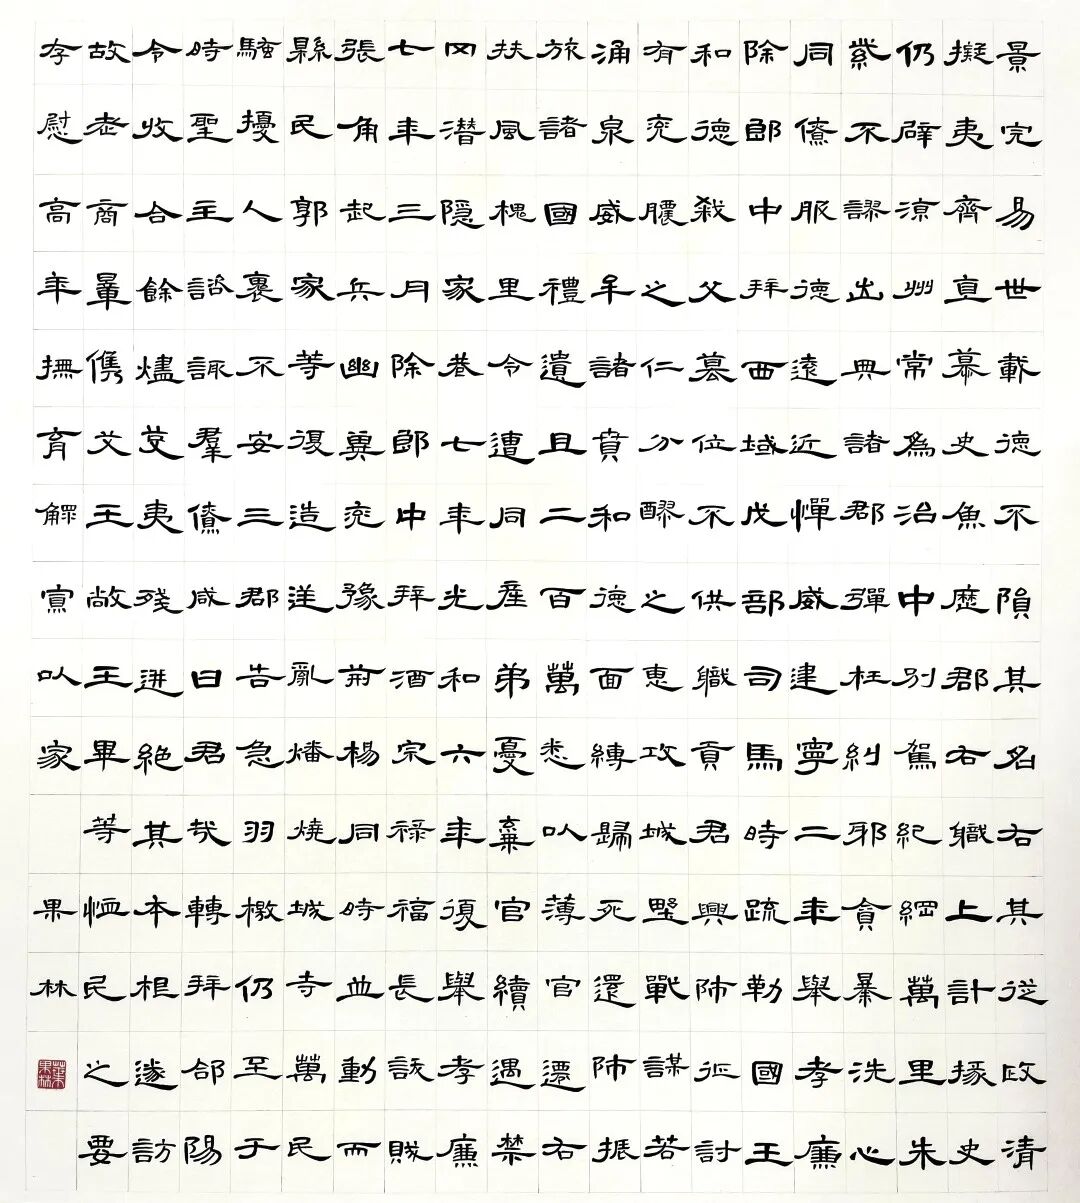 景完易世載德不隕其名右其從政清
擬夷齊直慕史魚歷郡右職上計掾史
仍辟涼州常為治中別駕紀綱萬里朱
紫不謬出典諸郡彈枉糾邪貪暴洗心
同僚服德遠近憚威建寧二年舉孝廉
除郎中拜西域戊部司馬時疏勒國王
和德殺父篡位不供職貢君興師征討
有兗膿之仁分醪之惠攻城野戰謀若
涌泉威牟諸賁和德面縛歸死還師振
旅諸國禮遺且二百萬悉以薄官遷右
扶風槐里令遭同產弟憂棄官續遇禁
罔潛隱家巷七年光和六年復舉孝廉
七年三月除郎中拜酒泉祿福長訞賊
張角起兵幽冀兗豫荊楊同時並動而
縣民郭家等復造逆亂燔燒城寺萬民
騷擾人裹不安三郡告急羽檄仍至于
時聖主諮諏群僚咸曰君哉轉拜郃陽
令收合餘燼芟夷殘迸絕其本根遂訪
故老商量儁艾王敞王畢等恤民之要
存慰高年撫育鰥寡以家
果林